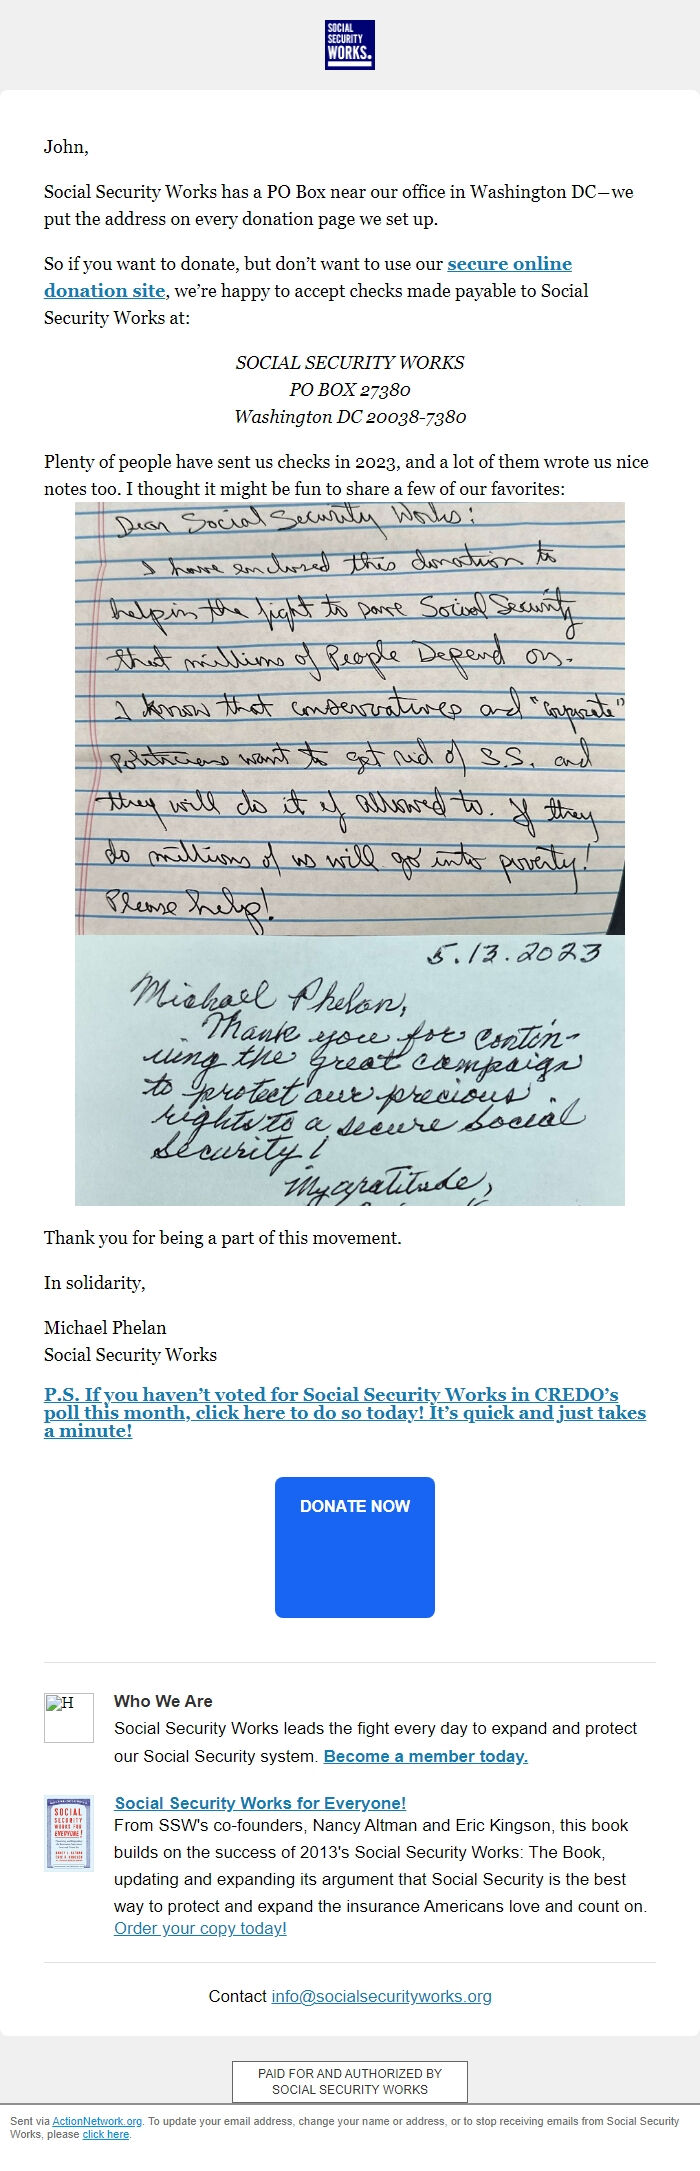 SOCIAL
SECURITY
WORKS.
John,
Social Security Works has a PO Box near our office in Washington DC—we
put the address on every donation page we set up.
So if you want to donate, but don’t want to use our secure online
donation site, we’re happy to accept checks made payable to Social
Security Works at:
SOCIAL SECURITY WORKS
PO BOX 27380
Washington DC 20038-7380
Plenty of people have sent us checks in 2023, and a lot of them wrote us nice
notes too. I thought it might be fun to share a few of our favorites:
Dear Social Security Works:
I have enclosed this donation to
help in the fight to save Social Security
that millions of People Depend on.
I know that conservatives and "corporate"
politicians want to get rid of S.S. and
they will do it if allowed to. If they
do millions of us will go into poverty!
Please help!
5.13.2023
Michael Phelan,
Thank you for contin-
uing the great campaign
to protect our precious
rights to a secure social
security!
My gratitude,
Thank you for being a part of this movement.
In solidarity,
Michael Phelan
Social Security Works
P.S. If you haven’t voted for Social Security Works in CREDO’s
poll this month, click here to do so today! It’s quick and just takes
a minute!
DONATE NOW
H
Who We Are
Social Security Works leads the fight every day to expand and protect
our Social Security system. Become a member today.
SOCIAL
SECURITY
WORKS FOR
EVERYONE!
Social Security Works for Everyone!
From SSW's co-founders, Nancy Altman and Eric Kingson, this book
builds on the success of 2013's Social Security Works: The Book,
updating and expanding its argument that Social Security is the best
way to protect and expand the insurance Americans love and count on.
Order your copy today!
Contact info@socialsecurityworks.org
PAID FOR AND AUTHORIZED BY
SOCIAL SECURITY WORKS
Sent via ActionNetwork.org. To update your email address, change your name or address, or to stop receiving emails from Social Security
Works, please click here.